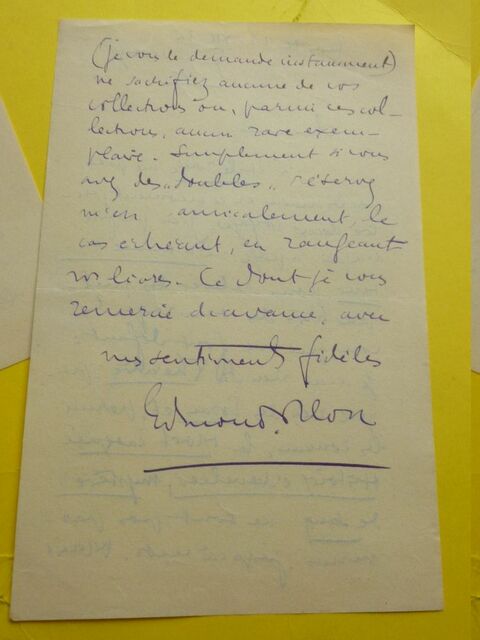 (je vous le demande instamment)
ne sacrifiez aucune de vos
collections ou, parmi ces col-
lections, aucun rare exem-
plaire. Simplement si vous
avez des "doubles", réservez
m'en amicalement, le
cas échéant, en rangeant
vos livres. Ce dont je vous
remercie d'avance, avec
mes sentiments fidèles
Edmond Pilon